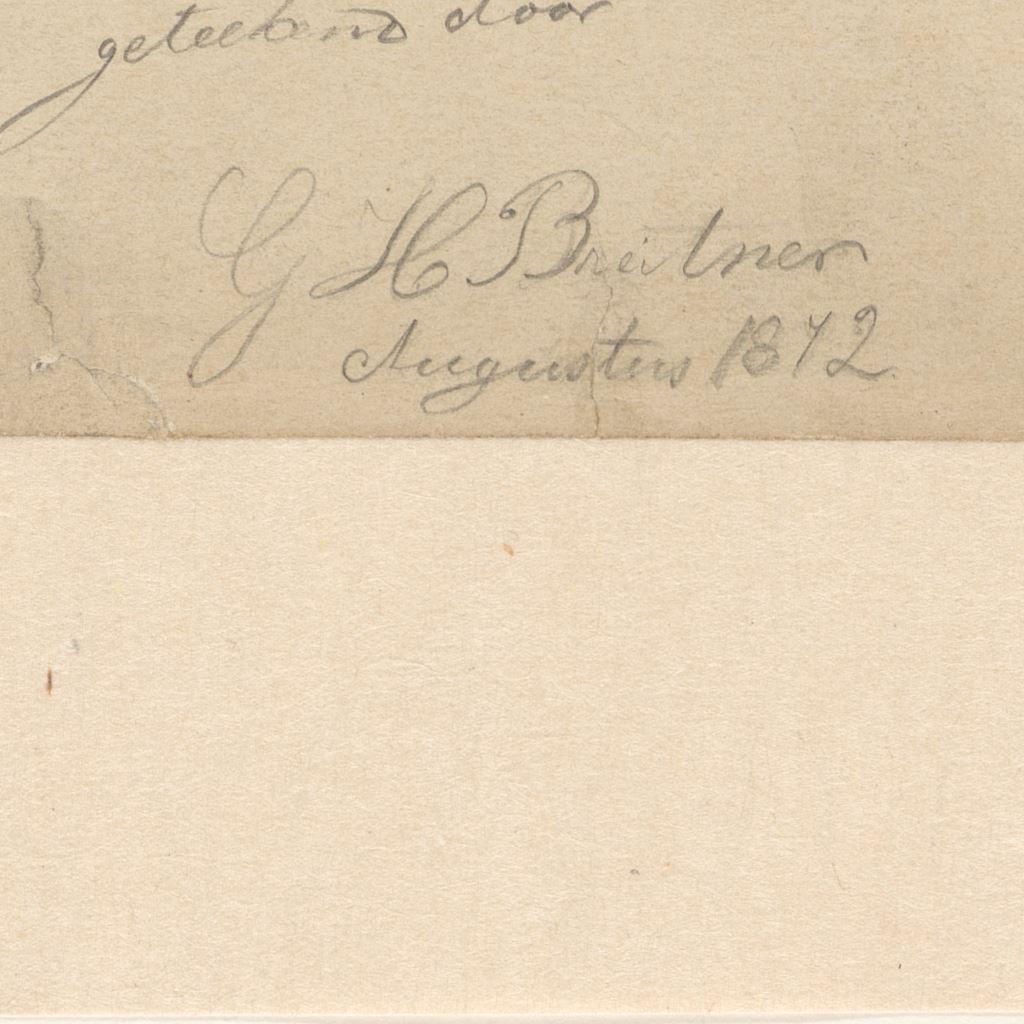 geteekend door
G H Breitner
Augustus 1872